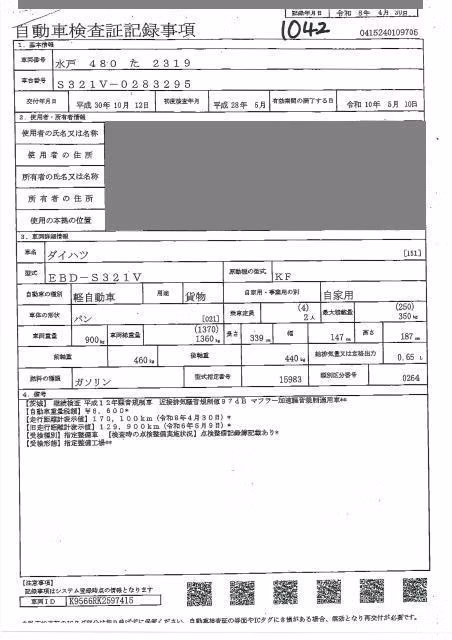 記録年月日 令和 8年 4月 30日
自動車検査証記録事項 1042 0415240109706
1. 基本情報
車両番号 水戸 480 た 2319
車台番号 S321V-0283295
交付年月日 平成30年10月12日 初度検査年月 平成28年 5月 有効期間の満了する日 令和10年 5月10日
2. 使用者・所有者情報
使用者の氏名又は名称
使用者の住所
所有者の氏名又は名称
所有者の住所
使用の本拠の位置
3. 車両詳細情報
車名 ダイハツ [151]
型式 EBD-S321V 原動機の型式 KF
自動車の種別 軽自動車 用途 貨物 自家用・事業用の別 自家用
車体の形状 バン [021] 乗車定員 (4) 2人 最大積載量 (250) 350kg
車両重量 900kg 車両総重量 (1370) 1360kg 長さ 339cm 幅 147cm 高さ 187cm
前軸重 460kg 後軸重 440kg 総排気量又は定格出力 0.65 L
燃料の種類 ガソリン 型式指定番号 15983 類別区分番号 0264
4. 備考
【茨城】 継続検査 平成12年騒音規制車 近接排気騒音規制値97dB マフラー加速騒音規制適用車**
【自動車重量税額】¥6,600*
【走行距離計表示値】170,100km(令和8年4月30日)*
【旧走行距離計表示値】129,900km(令和6年5月9日)*
【受検種別】指定整備車 【検査時の点検整備実施状況】点検整備記録簿記載あり*
【受検形態】指定整備工場**
【注意事項】
記録事項はシステム登録時点の情報となります
車両ID K9566RK2597415
自動車検査証の券面やICタグに目がある場合、破損となり再交付が必要です。